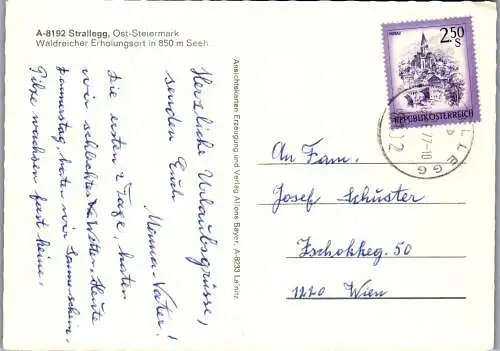 A-8192 Strallegg, Ost-Steiermark
Waldreicher Erholungsort in 850 m Seeh.
Herzliche Urlaubsgrüsse,
senden Euch
Mama-Vater!
Die ersten 2 Tage, hatten
wir schlechtes Wetter. Heute
Donnerstag, haten wir Sonnenschein,
Pilze wachsen fast keine.
Ansichtskarten Erzeugung und Verlag Alfons Bayer, A-8233 Lafnitz
2.50
S
REPUBLIK ÖSTERREICH
LLEGG
77-10
An Fam.
Josef Schuster
Zschokkeg. 50
1220 Wien